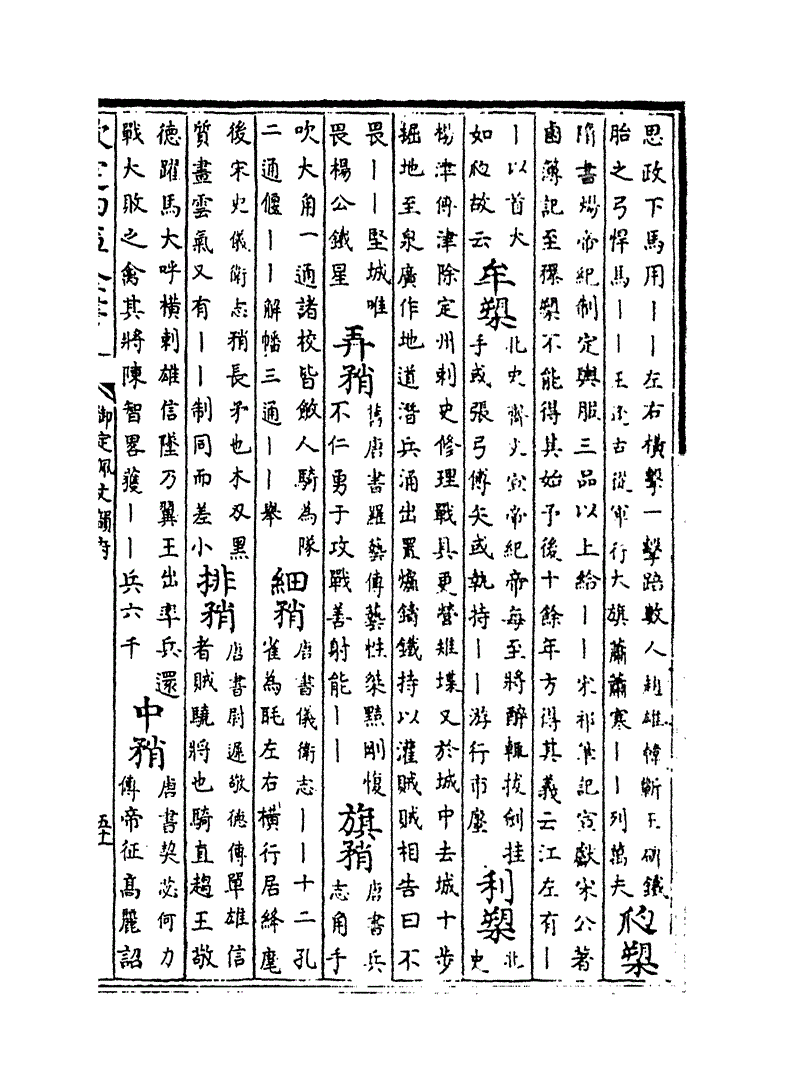 思政下馬用丨丨左右橫擊一擊踣數人趙雄韓蘄王碑鐵
胎之弓悍馬丨丨王遵古從軍行大旗蕭蕭寒丨丨列萬夫
瓟槊
隋書煬帝紀制定輿服三品以上給丨丨宋祁筆記宣獻宋公著
鹵簿記至犦槊不能得其始予後十餘年方得其義云江左有丨
丨以首大
如瓟故云
牟槊
北史齊文宣帝紀帝每至將醉輒拔劍挂
手或張弓傅矢或執持丨丨游行市廛
利槊
北
史
楊津傳津除定州刺史修理戰具更營雉堞又於城中去城十步
掘地至泉廣作地道潛兵涌出置爐鑄鐵持以灌賊賊相告曰不
畏丨丨堅城唯
畏楊公鐵星
弄矟
舊唐書羅藝傳藝性桀黠剛愎
不仁勇于攻戰善射能丨丨
旗矟
唐書兵
志角手
吹大角一通諸校皆斂人騎為隊
二通偃丨丨解幡三通丨丨舉
細矟
唐書儀衛志丨丨十二孔
雀為毦左右橫行居絳麾
後宋史儀衛志矟長矛也木刃黑
質畫雲氣又有丨丨制同而差小
排矟
唐書尉遲敬德傳單雄信
者賊驍將也騎直趨王敬
德躍馬大呼橫刺雄信墜乃翼王出率兵還
戰大敗之禽其將陳智畧獲丨丨兵六千
中矟
唐書契苾何力
傳帝征高麗詔
欽定四庫全書
御定佩文韻府
五十